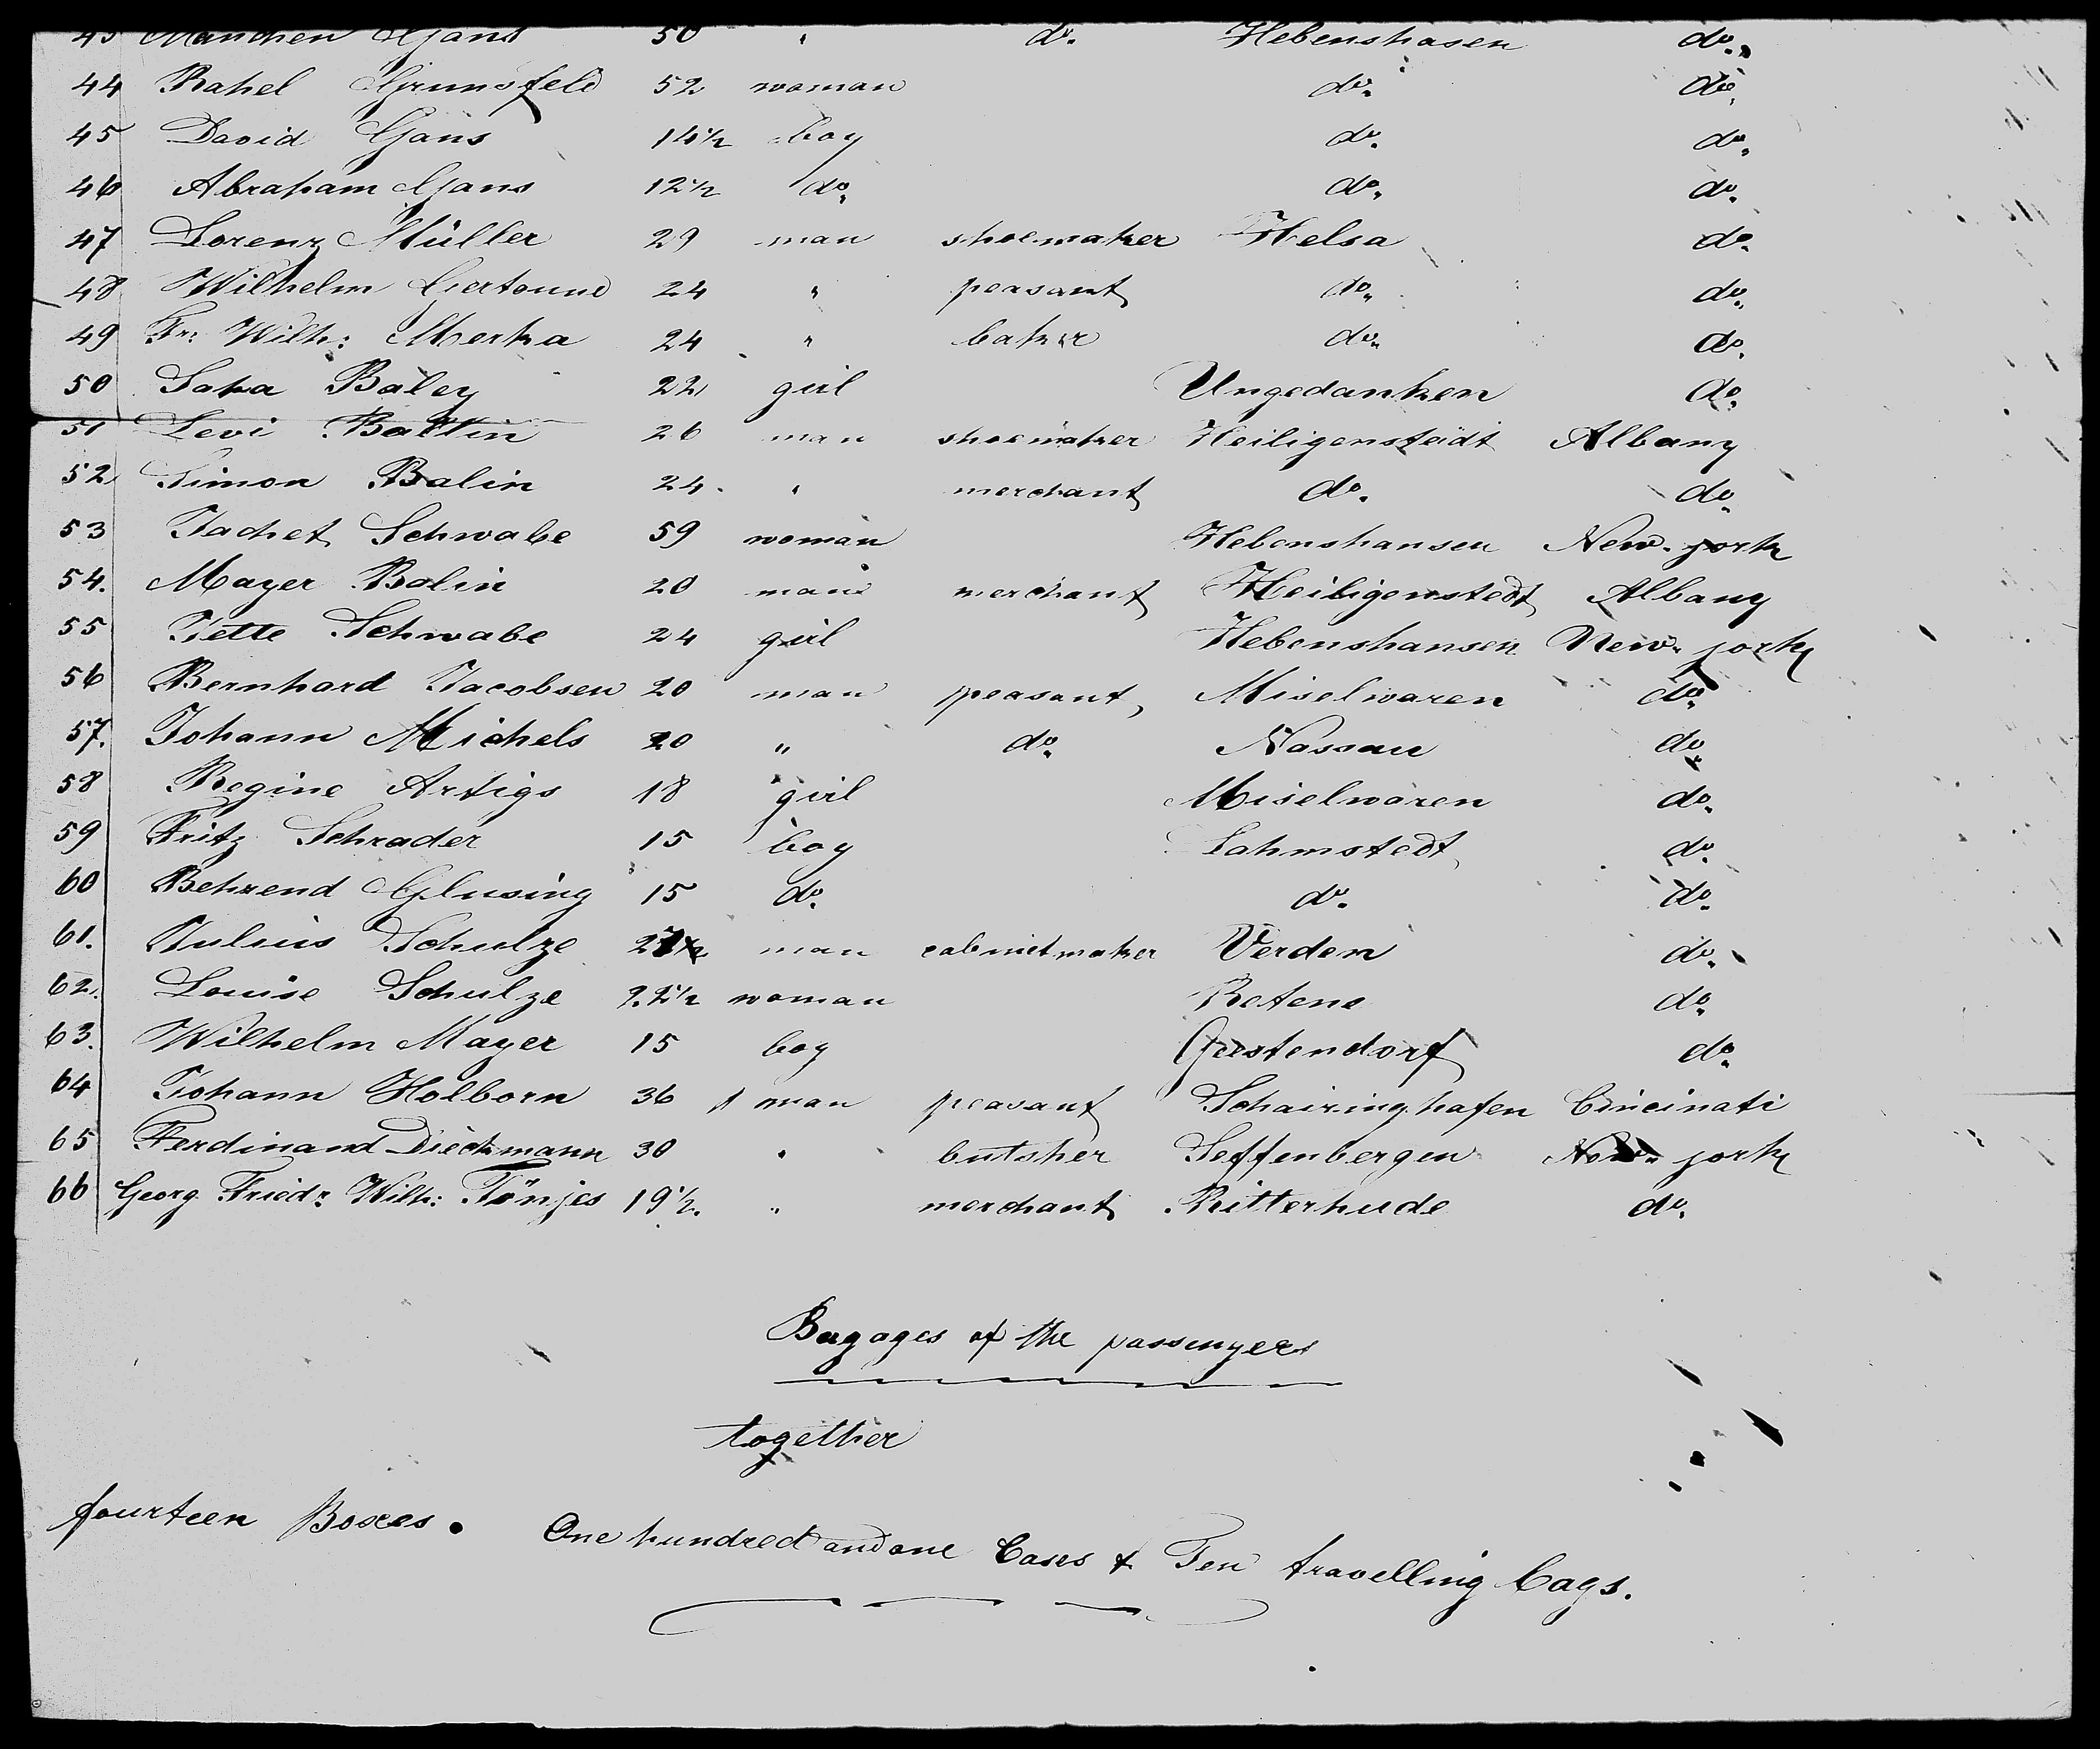 43 Manchen Gans 50 " do. Hebenshasen do.
44 Rahel Grunsfeld 52 woman do. do.
45 David Gans 14½ boy do. do.
46 Abraham Gans 12½ do. do. do.
47 Lorenz Müller 29 man shoemaker Helsa do.
48 Wilhelm Gertound 24 " peasant do. do.
49 Fr. Wilh: Merka 24 " baker do. do.
50 Saka Baley 22 girl Ungedanken do.
51 Levi Ballin 26 man shoemaker Heiligenstadt Albany
52 Simon Balin 24 " merchant do. do.
53 Jachet Schwabe 59 woman Hebenshansen New-york
54. Mayer Balin 20 man merchant Heiligenstedt Albany
55 Jette Schwabe 24 girl Hebenshansen New-york
56 Bernhard Jacobsen 20 man peasant Miselwaren do.
57. Johann Michels 20 " do. Nassau do.
58 Regine Artigs 18 girl Miselwaren do.
59 Fritz Schrader 15 boy Lahmstedt do.
60 Behrend Glusing 15 do. do. do.
61. Julius Schulze man cabinetmaker Verden do.
62. Louise Schulze 22½ woman Retens do.
63. Wilhelm Mayer 15 boy Geestendorf do.
64 Johann Holborn 36 man peasant Schairinghafen Cincinati
65 Ferdinand Dieckmann 30 " butsher Seffenbergen New-york
66 Georg Friedr. Wilh: Tönjes 19½. " merchant Ritterhude do.
Bagages of the passengers
together
fourteen Boxes. One hundred and one Cases & Ten travelling bags.